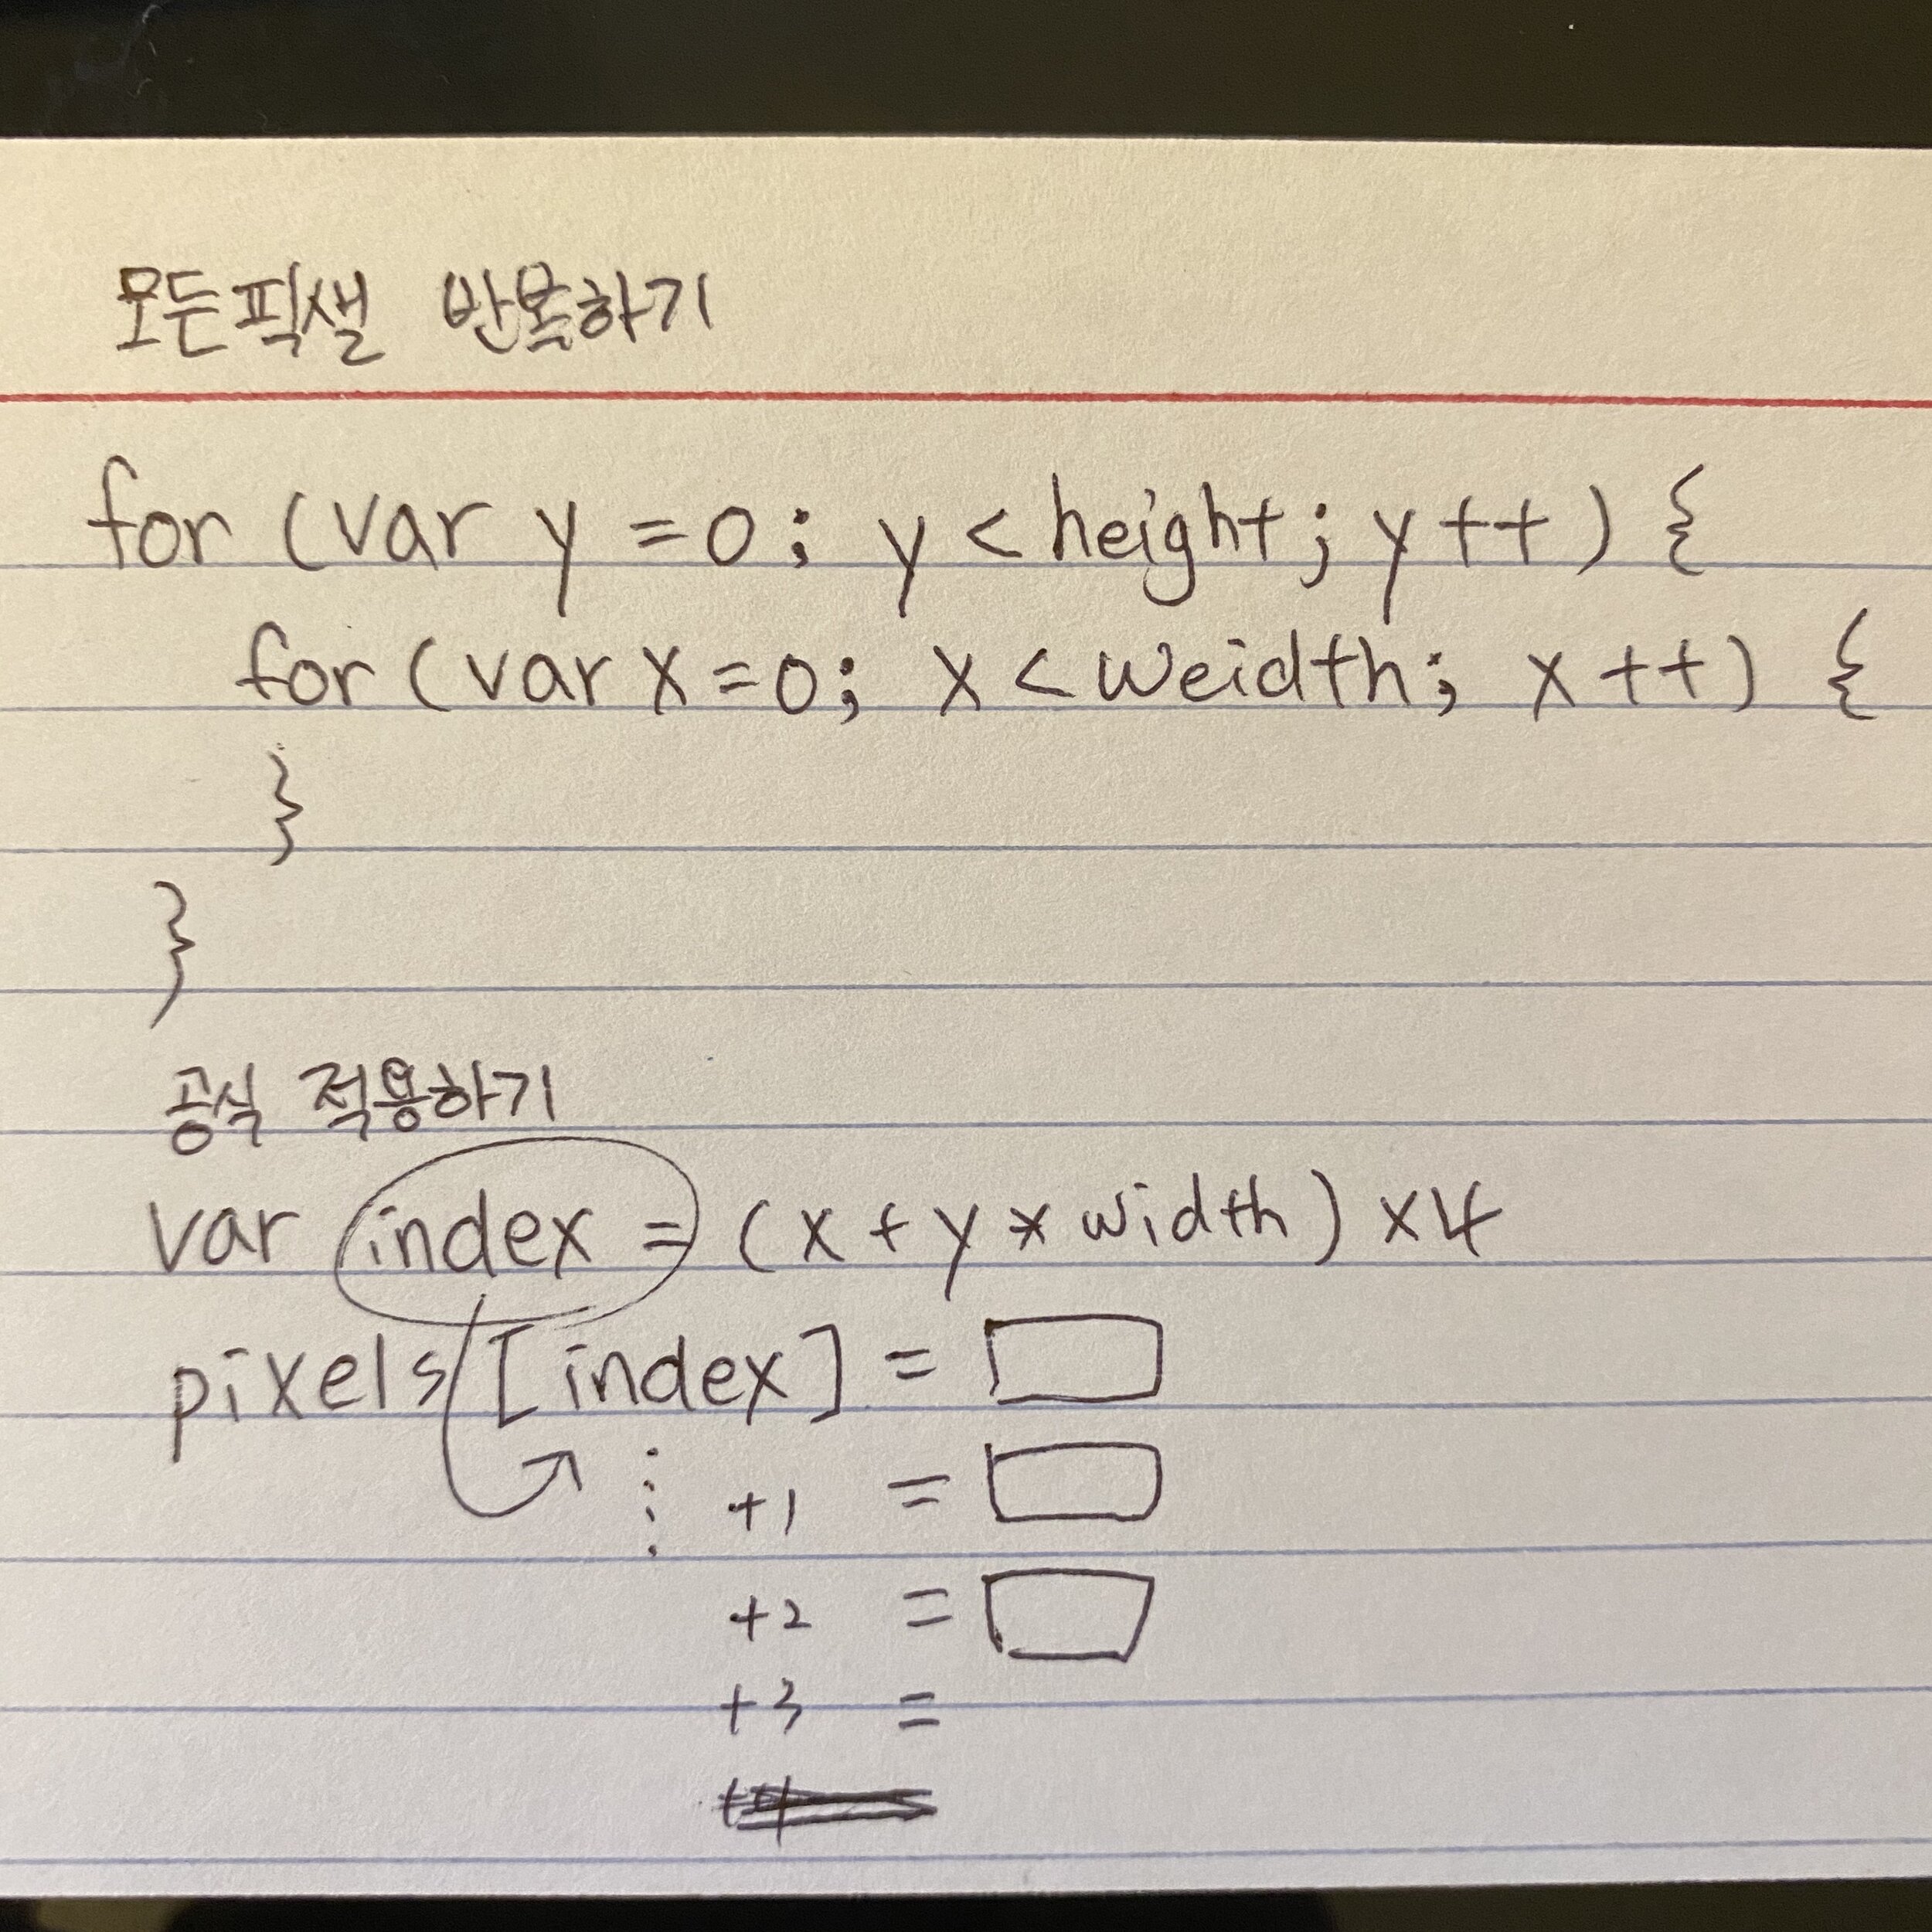 모든픽셀 반복하기
for (var y = 0; y < height; y++) {
for (var x = 0; x < weidth; x++) {
}
}
공식 적용하기
var index = (x + y * width) x4
pixels [index] =
+1 =
+2 =
+3 =